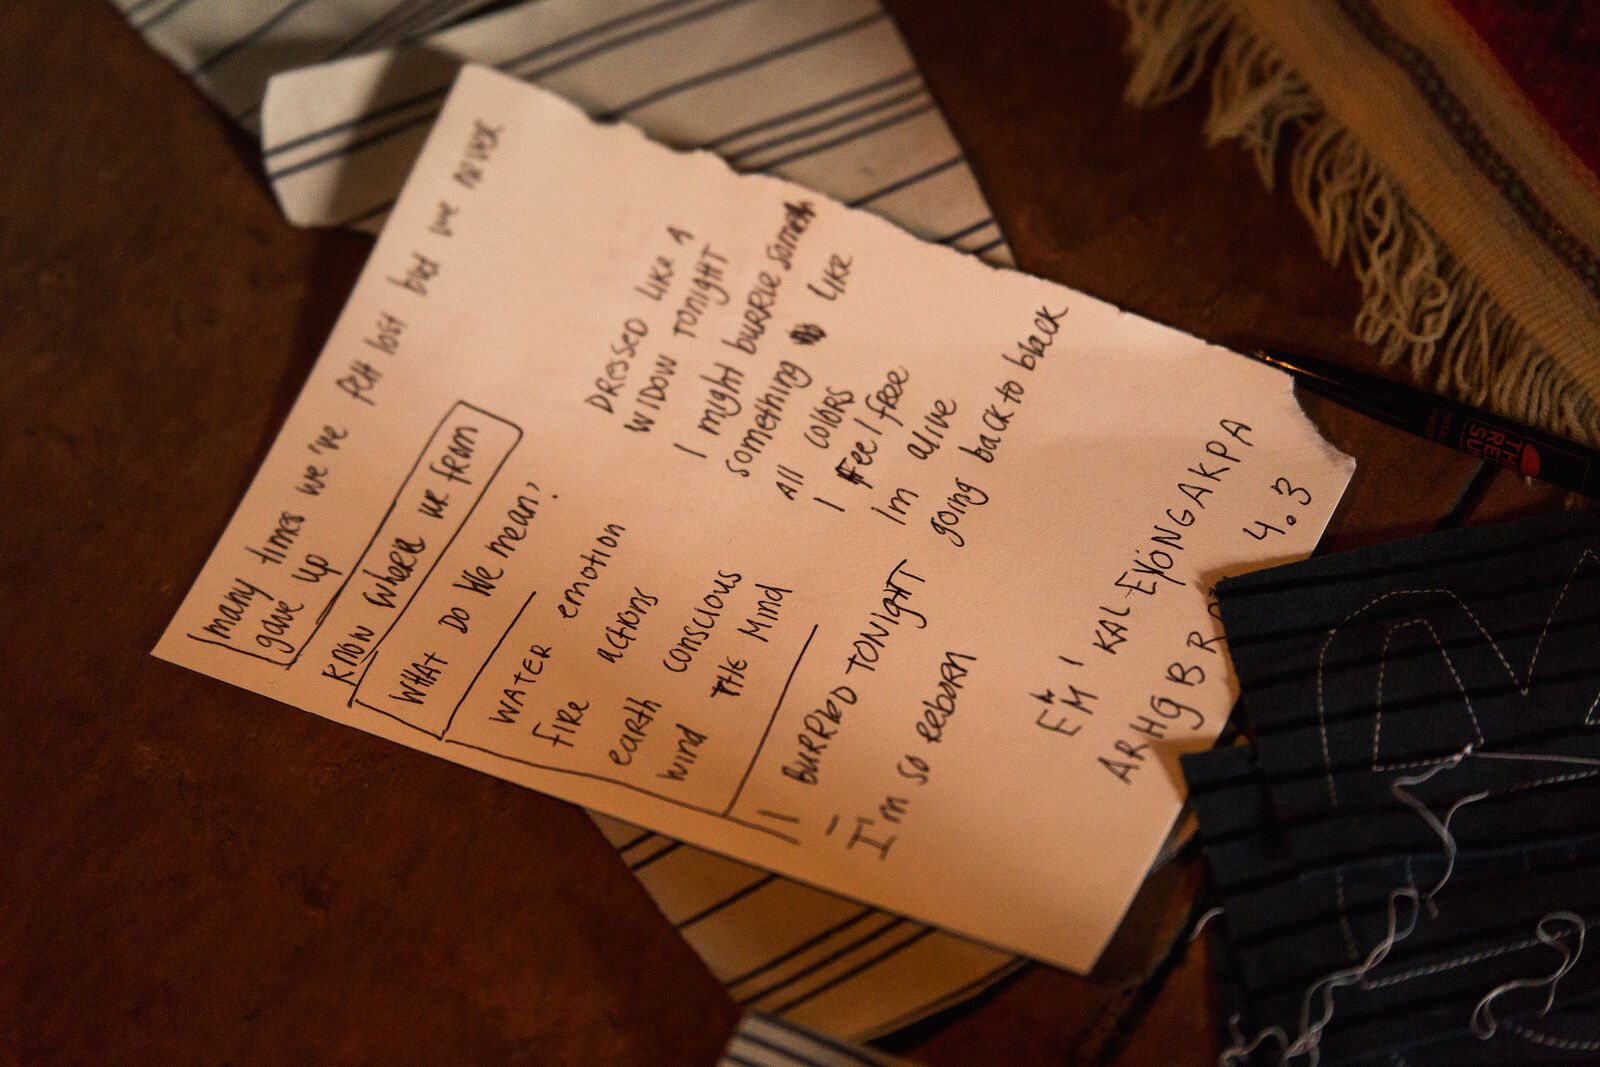 many times we've felt lost but we never
gave up
KNOW WHERE WE from
WHAT DO WE mean?
WATER emotion
fire actions
earth conscious
wind THE Mind
I BURRIED TONIGHT
I'm so REBORN
DRESSED LIKE A
WIDOW TONIGHT
I might burrie someth
something LIKE
All colors
I feel free
Im alive
going back to black
EM' KAL EYONGAKPA
ARHGBR 4.3
THE
RE
SU